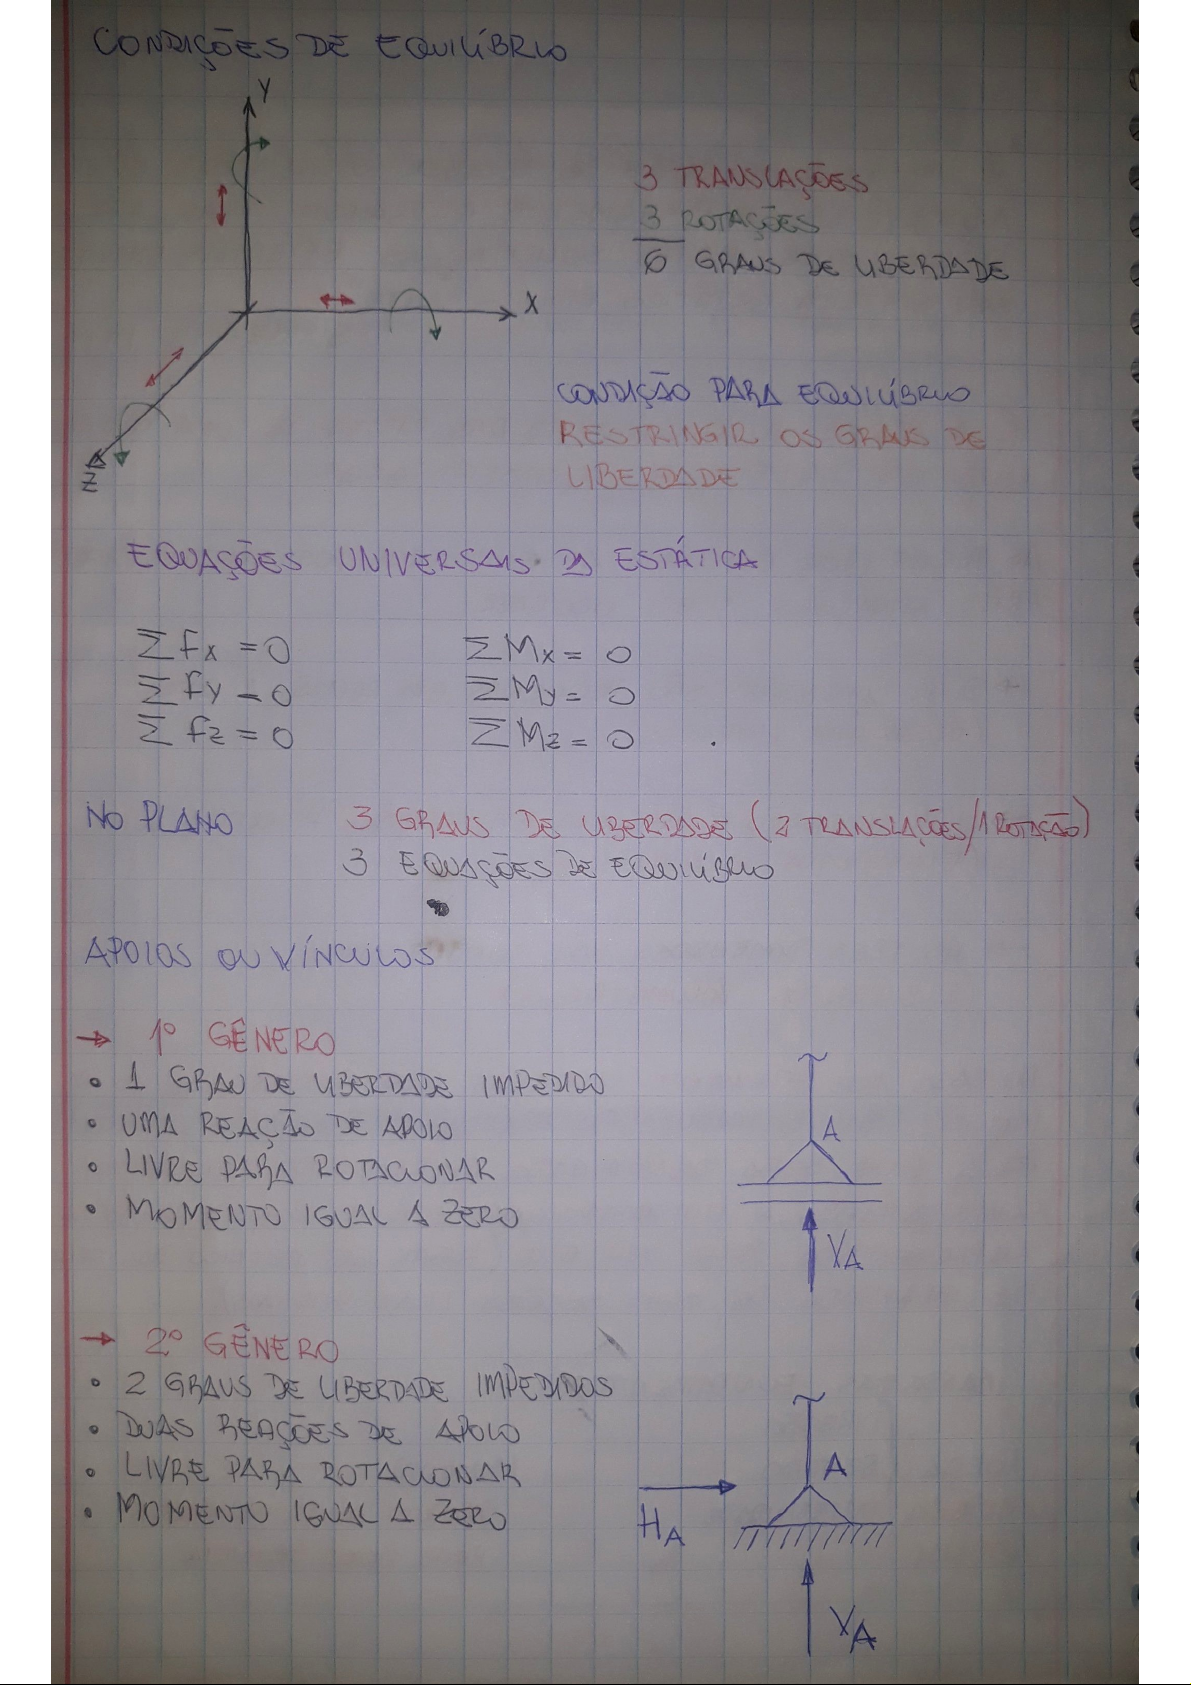 CONDIÇÕES DE EQUILÍBRIO
Y
X
Z
3 TRANSLAÇÕES
3 ROTAÇÕES
6 GRAUS DE LIBERDADE
CONDIÇÃO PARA EQUILÍBRIO
RESTRINGIR OS GRAUS DE
LIBERDADE
EQUAÇÕES UNIVERSAIS DA ESTÁTICA
Σ Fx = 0 ΣMx = 0
Σ Fy = 0 ΣMy = 0
Σ Fz = 0 ΣMz = 0
NO PLANO 3 GRAUS DE LIBERDADE (2 TRANSLAÇÕES/1 ROTAÇÃO)
3 EQUAÇÕES DE EQUILÍBRIO
APOIOS OU VÍNCULOS
→ 1º GÊNERO
• 1 GRAU DE LIBERDADE IMPEDIDO
• UMA REAÇÃO DE APOIO
• LIVRE PARA ROTACIONAR
• MOMENTO IGUAL A ZERO
A
VA
→ 2º GÊNERO
• 2 GRAUS DE LIBERDADE IMPEDIDOS
• DUAS REAÇÕES DE APOIO
• LIVRE PARA ROTACIONAR
• MOMENTO IGUAL A ZERO
A
HA
VA